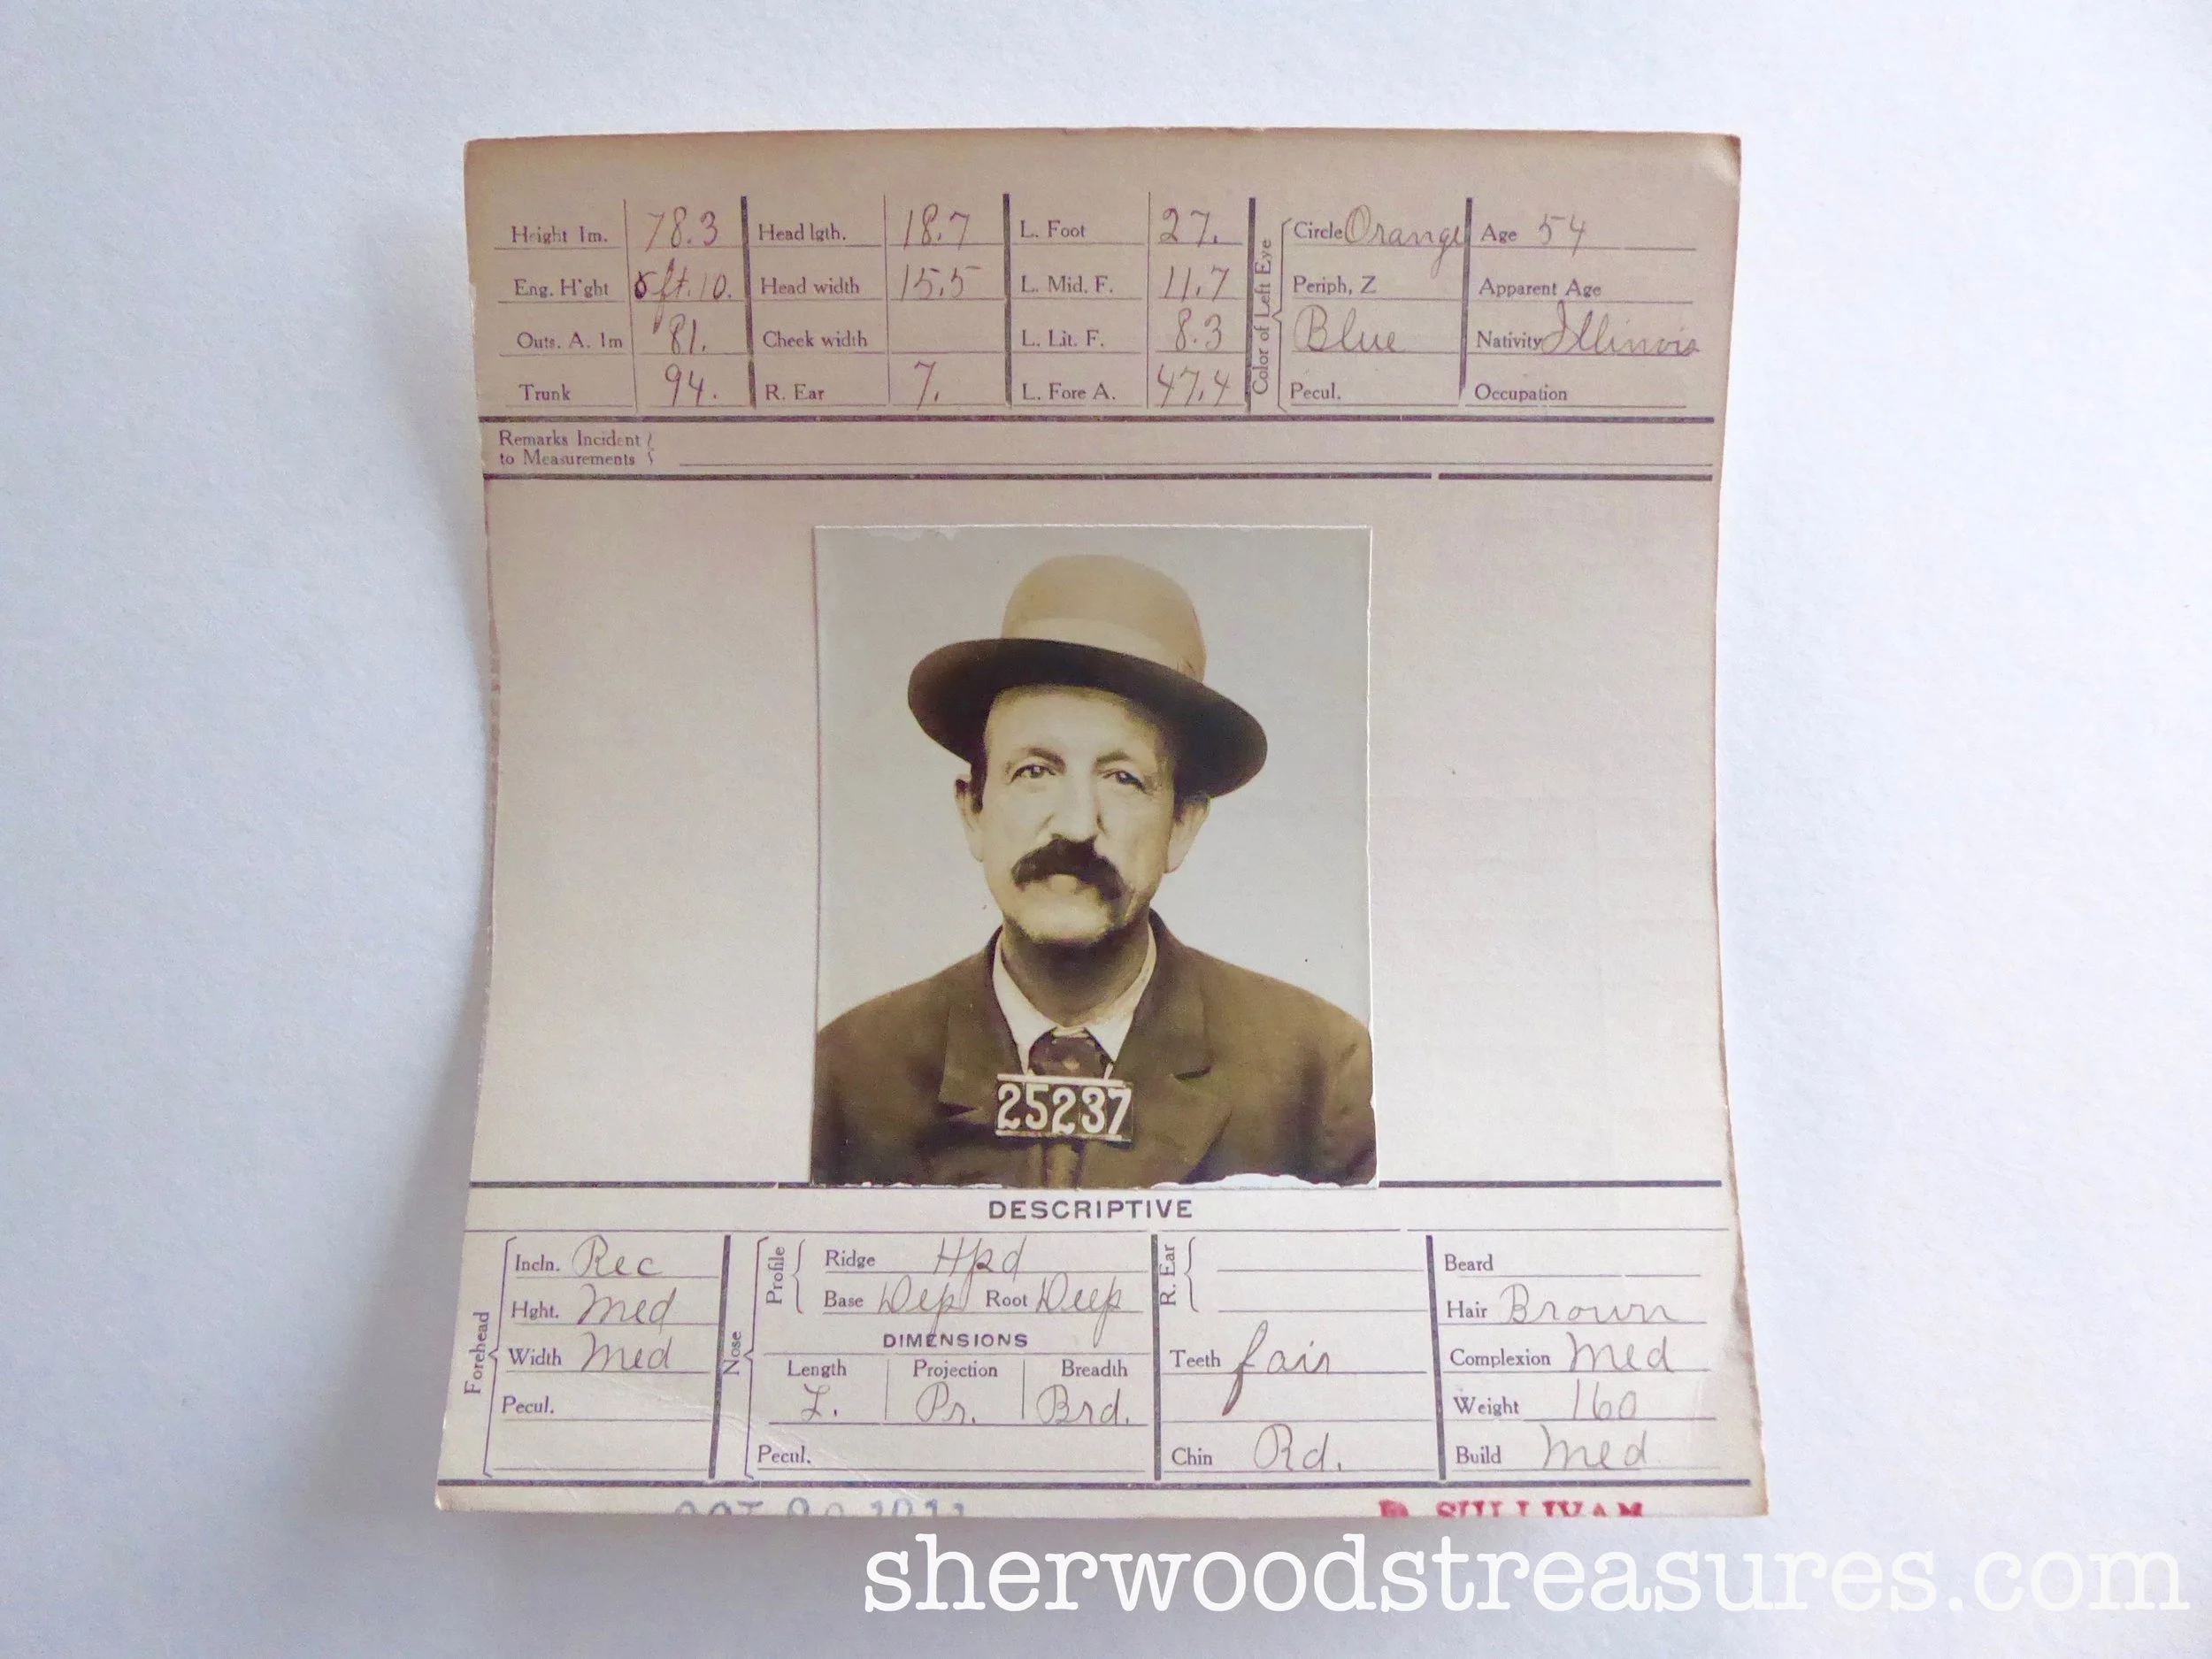 Height 1m. 78.3 Head lgth. 18.7 L. Foot 27. Circle Orange Age 54
Eng. H'ght 5ft.10. Head width 15.5 L. Mid. F. 11.7 Periph, Z Apparent Age
Outs. A. 1m 81. Cheek width L. Lit. F. 8.3 Blue Nativity Illinois
Trunk 94. R. Ear 7. L. Fore A. 47.4 Pecul. Occupation
Color of Left Eye
Remarks Incident
to Measurements
25237
DESCRIPTIVE
Forehead
Incln. Rec
Hght. Med
Width Med
Pecul.
Nose
Profile
Ridge Hpd
Base Dep Root Deep
DIMENSIONS
Length Projection Breadth
L. Pr. Brd.
Pecul.
R. Ear
Teeth fair
Chin Rd.
Beard
Hair Brown
Complexion Med
Weight 160
Build Med
SULLIVAN
sherwoodstreasures.com